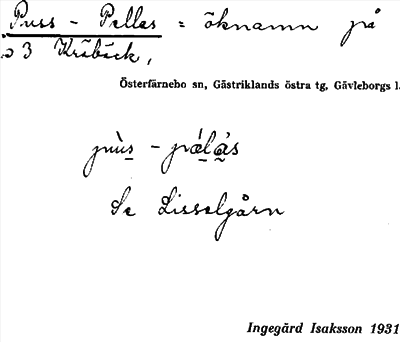 Puss - Pellas = öknamn på
3 Kråbäck,
Österfärnebo sn, Gästriklands östra tg, Gävleborgs l.
pùs - pǽlas
Se Lisselgårn
Ingegärd Isaksson 1931